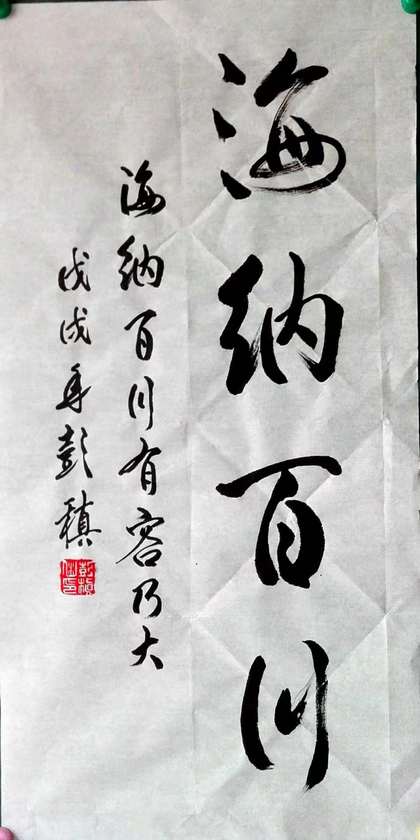 海纳百川
海纳百川有容乃大
戊戌年彭稹